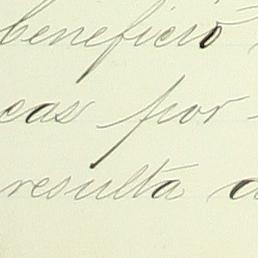 beneficio
cas por
resulta a